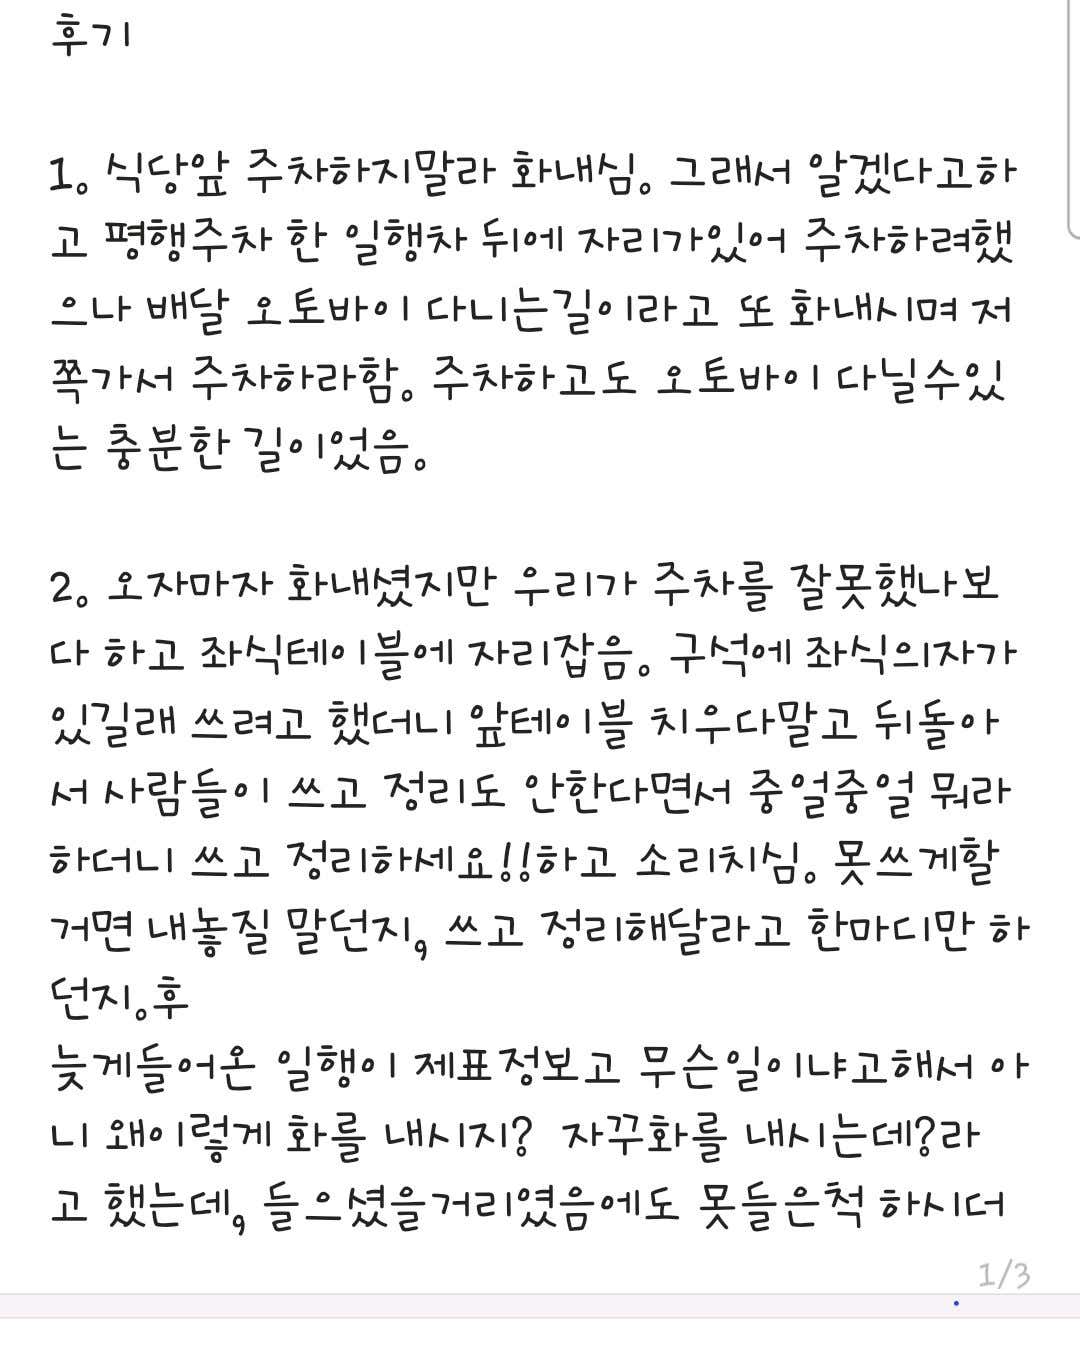 후기
1. 식당앞 주차하지말라 화내심. 그래서 알겠다고하
고 평행주차 한 일행차 뒤에 자리가있어 주차하려했
으나 배달 오토바이 다니는길이라고 또 화내시며 저
쪽가서 주차하라함. 주차하고도 오토바이 다닐수있
는 충분한 길이었음.
2. 오자마자 화내셨지만 우리가 주차를 잘못했나보
다 하고 좌식테이블에 자리잡음. 구석에 좌식의자가
있길래 쓰려고 했더니 앞테이블 치우다말고 뒤돌아
서 사람들이 쓰고 정리도 안한다면서 중얼중얼 뭐라
하더니 쓰고 정리하세요!!하고 소리치심. 못쓰게할
거면 내놓질 말던지, 쓰고 정리해달라고 한마디만 하
던지.후
늦게들어온 일행이 제표정보고 무슨일이냐고해서 아
니 왜이렇게 화를 내시지? 자꾸화를 내시는데?라
고 했는데, 들으셨을거리였음에도 못들은척 하시더
1/3